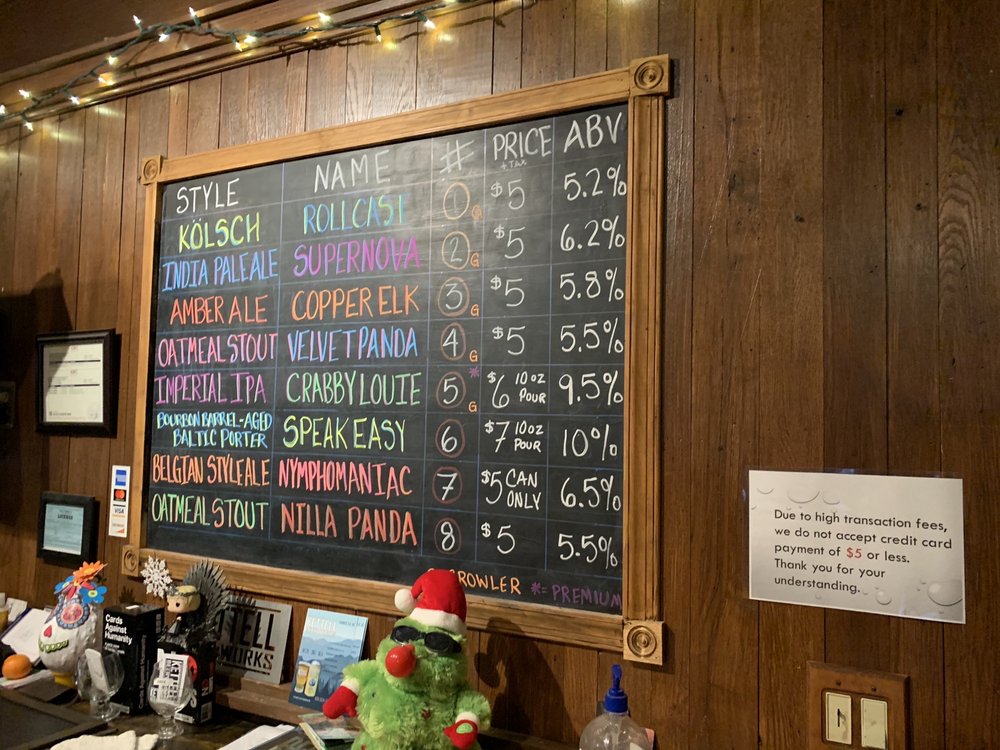 STYLE NAME # PRICE + TAX ABV
KÖLSCH ROLLCAST 1 G $5 5.2%
INDIA PALE ALE SUPERNOVA 2 G $5 6.2%
AMBER ALE COPPER ELK 3 G $5 5.8%
OATMEAL STOUT VELVET PANDA 4 G $5 5.5%
IMPERIAL IPA CRABBY LOUIE 5 * G $6 10 oz POUR 9.5%
BOURBON BARREL-AGED BALTIC PORTER SPEAK EASY 6 $7 10 oz POUR 10%
BELGIAN STYLE ALE NYMPHOMANIAC 7 $5 CAN ONLY 6.5%
OATMEAL STOUT NILLA PANDA 8 $5 5.5%
GROWLER *=PREMIUM
Due to high transaction fees,
we do not accept credit card
payment of $5 or less.
Thank you for your
understanding.
VISA
Cards
Against
Humanity